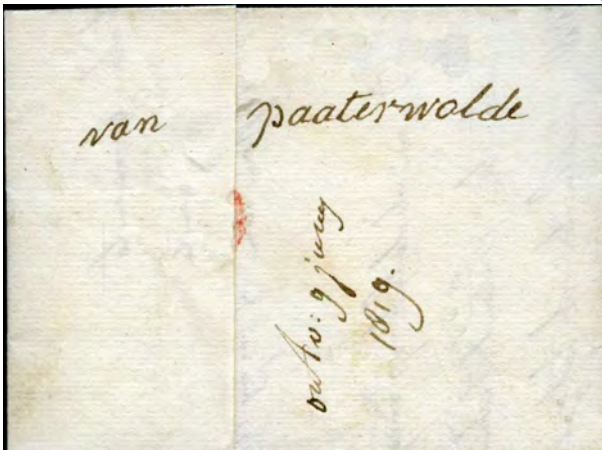 van paaterwolde
ontv: 9 juny
1819.